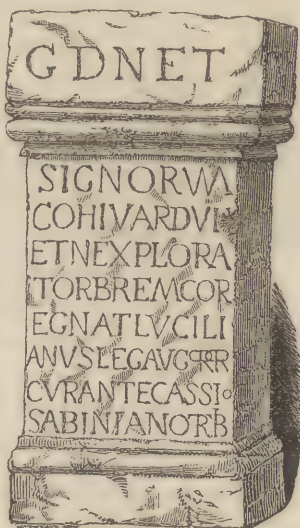 G D N ET
SIGNORVM
COH I VARDVL
ET N EXPLORA
TOR BREM COR
EGNAT LVCILI
ANVS LEG AVG PR PR
CVRANTE CASSIO
SABINIANO TRIB